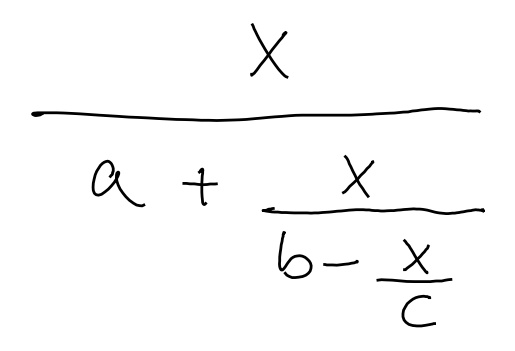 x
a + x
b - x
c